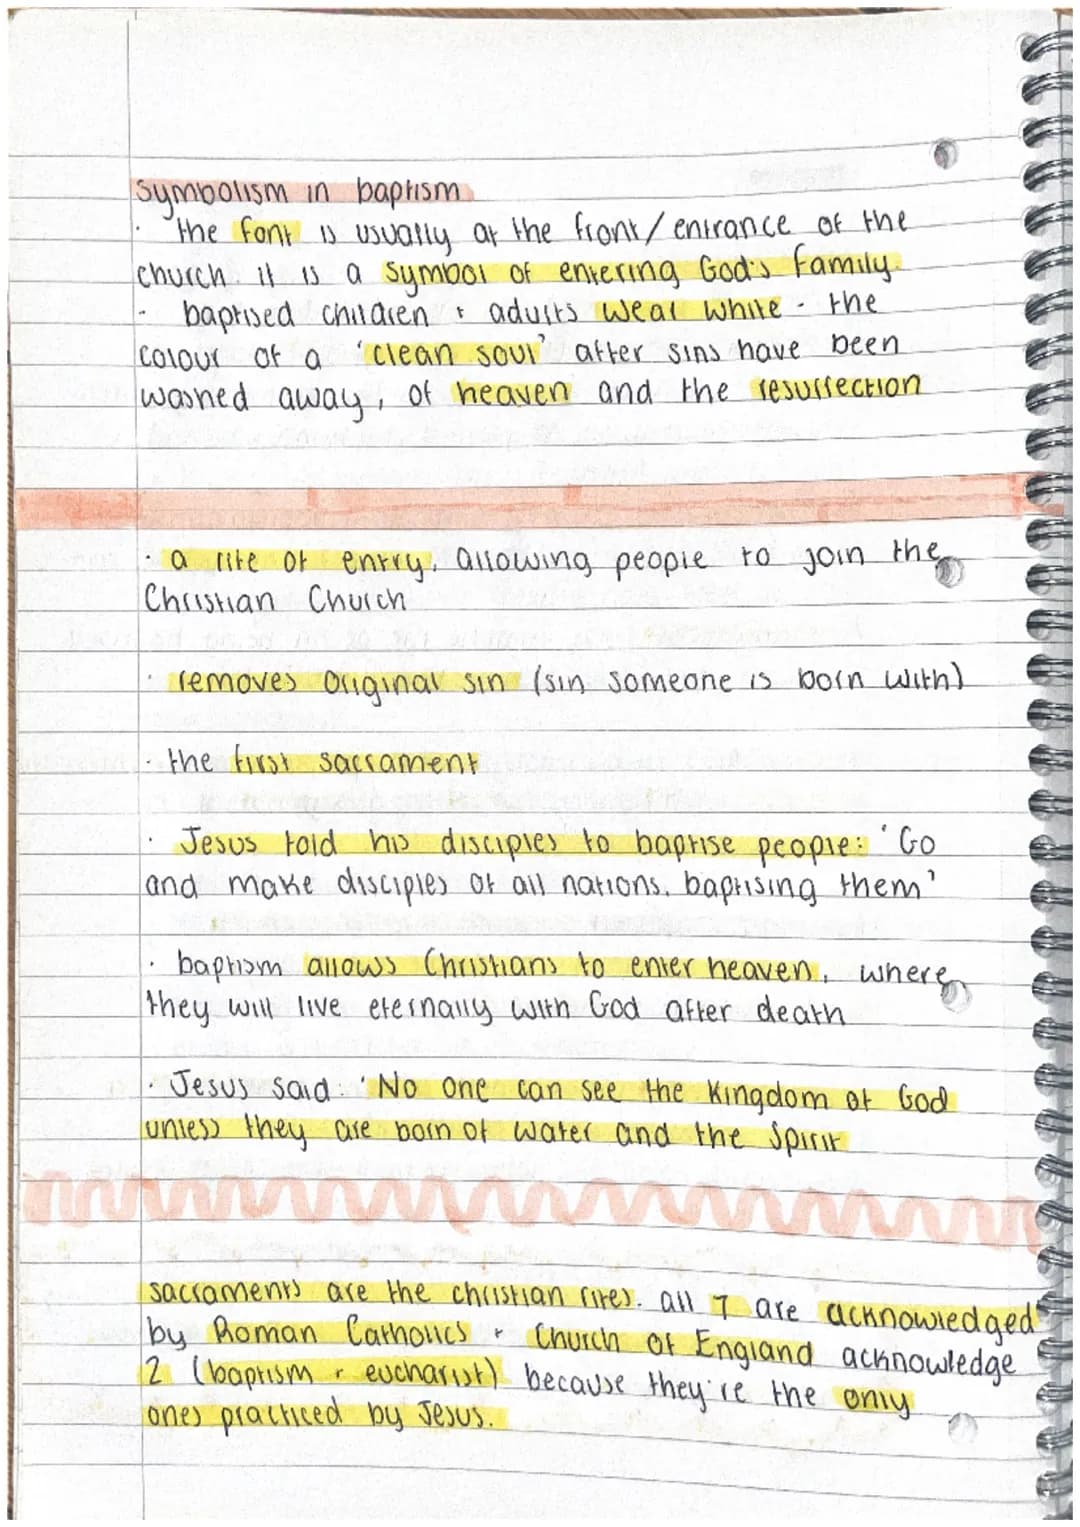 Symbolism in baptism
· the font is usually at the front/entrance of the
church. it is a symbol of entering God's family.
· baptised children + adults wear white - the
colour of a 'clean soul' after sins have been
washed away, of heaven and the resurrection
· a rite of entry, allowing people to join the
Christian Church
· removes original sin (sin someone is born with)
· the first sacrament
· Jesus told his disciples to baptise people: 'Go
and make disciples of all nations, baptising them'
· baptism allows Christians to enter heaven, where
they will live eternally with God after death
· Jesus said. 'No one can see the Kingdom of God
unless they are born of water and the Spirit
sacraments are the christian rites. all 7 are acknowledged
by Roman Catholics + Church of England acknowledge
2 (baptism + eucharist) because they're the only
ones practiced by Jesus.